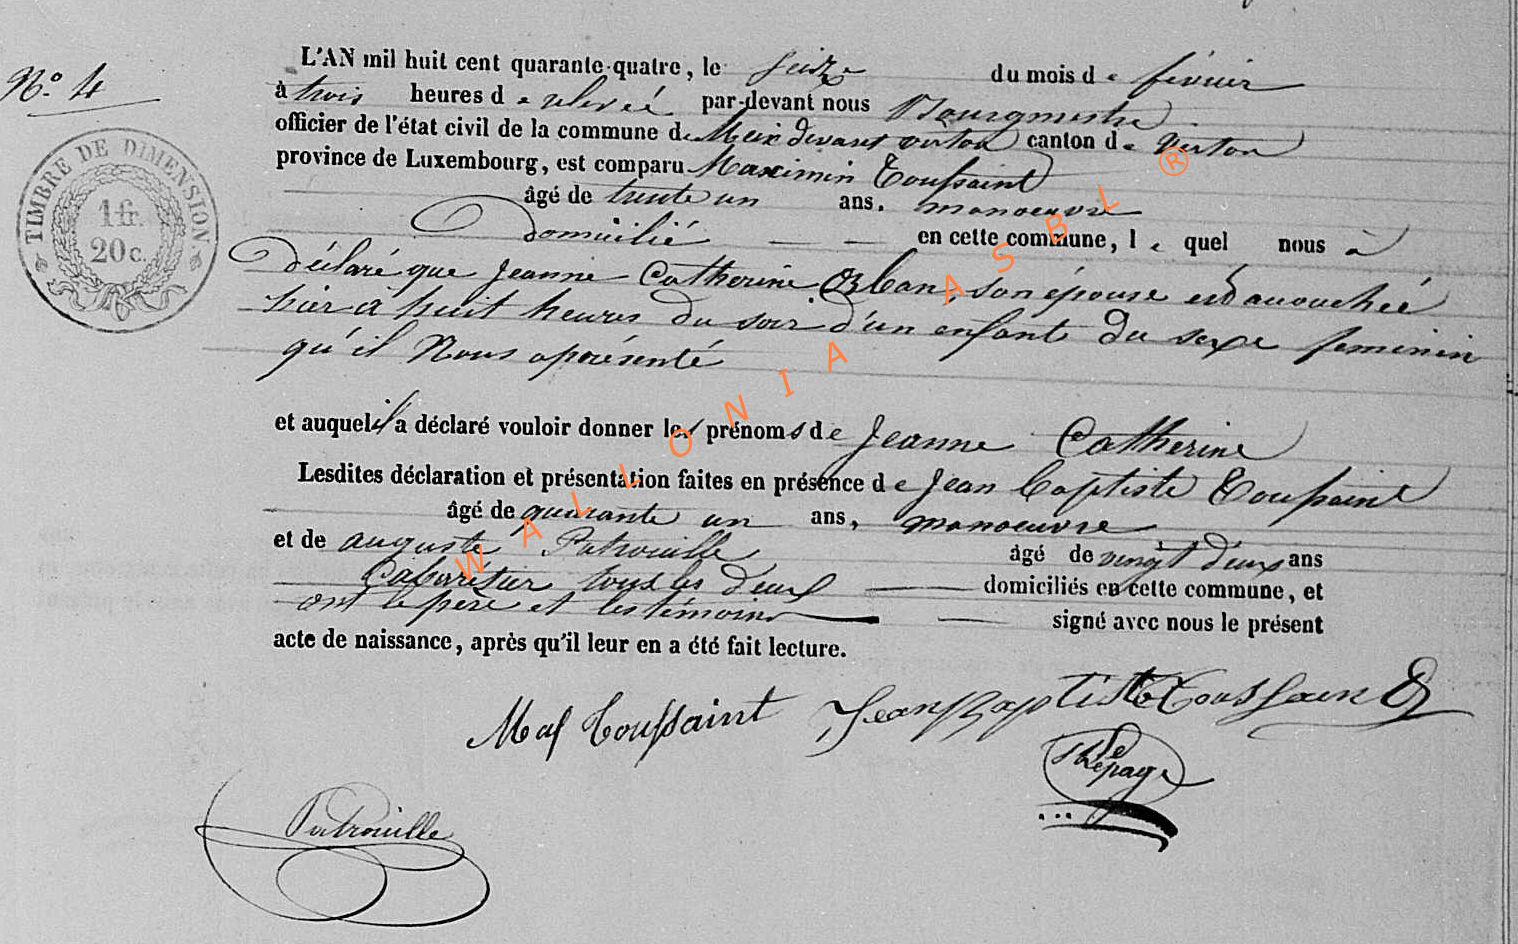 N.o 4
TIMBRE DE DIMENSION.
1 fr.
20 c.
L'AN mil huit cent quarante-quatre, le seize du mois de fevrier
à trois heures de relevée par-devant nous Bourgmestre
officier de l'état civil de la commune de Meix devant virton canton de Virton
province de Luxembourg, est comparu Maximin Toussaint
âgé de trente un ans, manoeuvre
Domicilié en cette commune, lequel nous a
déclaré que Jeanne Catherine Orban son épouse est accouchée
hier à huit heures du soir d'un enfant du sexe feminin
qu'il Nous a présenté
et auquel il a déclaré vouloir donner les prénoms de Jeanne Catherine
Lesdites déclaration et présentation faites en présence de Jean Baptiste Toussaint
âgé de quarante un ans, manoeuvre
et de auguste Patrouille âgé de vingt deux ans
Cabaretier tous les deux domiciliés en cette commune, et
ont le père et les témoins signé avec nous le présent
acte de naissance, après qu'il leur en a été fait lecture.
Max Toussaint Jean Baptiste Toussaint
Lepage
Patrouille
WALLONIA ASBL ®